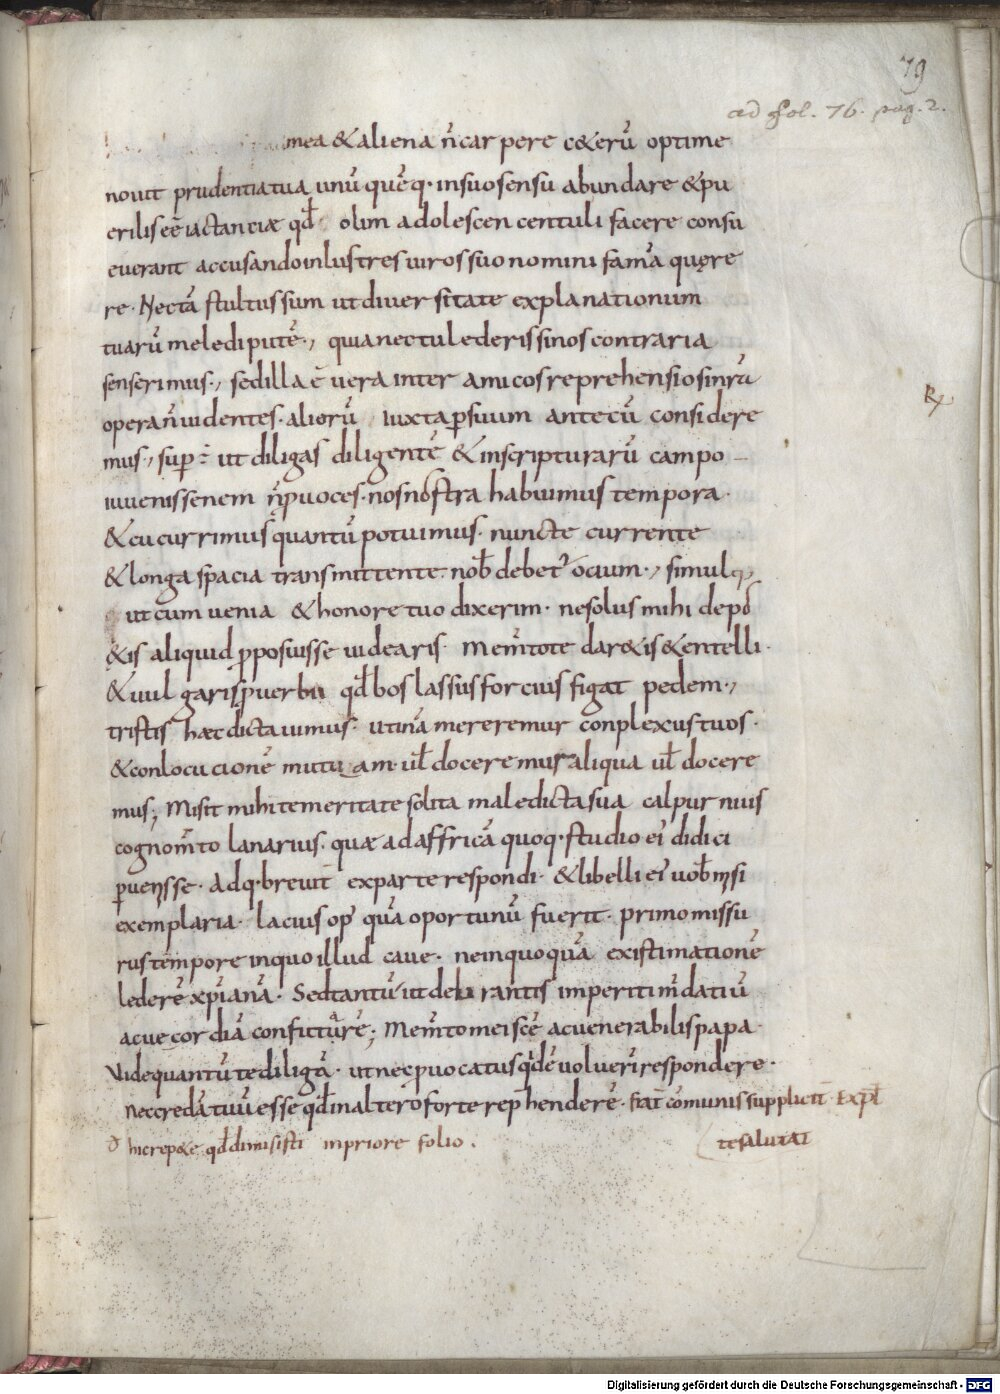 79
ad fol. 76. pag. 2.
mea & aliena n̄ carpere c&erū optime
nouit prudentia tua unū quēq· in suo sensu abundare & pu
erilis eē iactanciæ qđ olim adolescen centuli facere consu
euerant accusando inlustres uiros suo nomini famā quęre
re· Nec tā stultus sum ut diuersitate explanationum
tuarū me ledi putē·, quia nec tu lederis si nos contraria
senserimus·, sed illa ē uera inter amicos reprehensio si nrā
operā n̄ uidentes· aliorū iuxta ꝑsium antecū considere
mus·, suꝑ ÷ ut diligas diligentē & in scripturarū campo
iuuenis senem n̄ ꝓuoces· nos nostra habuimus tempora·
& cucurrimus quantū potuimus· nunc te currente
& longa spacia transmittente· noƀ debet᷒ ocium·, simulq;
ut cum uenia & honore tuo dixerim· ne solus mihi de po
&is aliquid ꝓposuisse uidearis· Mem̄tote dar&is & entelli·
& uulgaris ꝓuerbii qđ bos lassus forcius figat pedem·,
tristis hæc dictauimus· utinā mereremur conplexus tuos·
& conlocucionē mutuam· uł doceremus aliqua uł docere
mus; Misit mihi temeritate solita maledicta sua calpurnius
cognom̄to lanarius· quæ ad affricā quoq· studio ei᷒ didici
ꝑuenisse· Adq· breuit᷒ ex parte respondi· & libelli ei᷒ uoƀ misi
exemplaria· lacius op᷒ quā oportunū fuerit· primo missu
rus tempore in quo illud caue· ne in quoquā existimationē
lederē xp̄ianā· Sed tantū ut delirantis imperitiīdatiū
ac uecordiā confutarē; Mem̄to mei scē ac uenerabilis papa·
Vide quantū te diligā· ut nec ꝓuocatus qđē uoluerī respondere·
nec credā tuū esse qđ in altero forte rep̄henderē· frat᷒ cōmunis suppliciter Expł
te salutat
đ hic rep&e qđ dimisisti in priore folio·